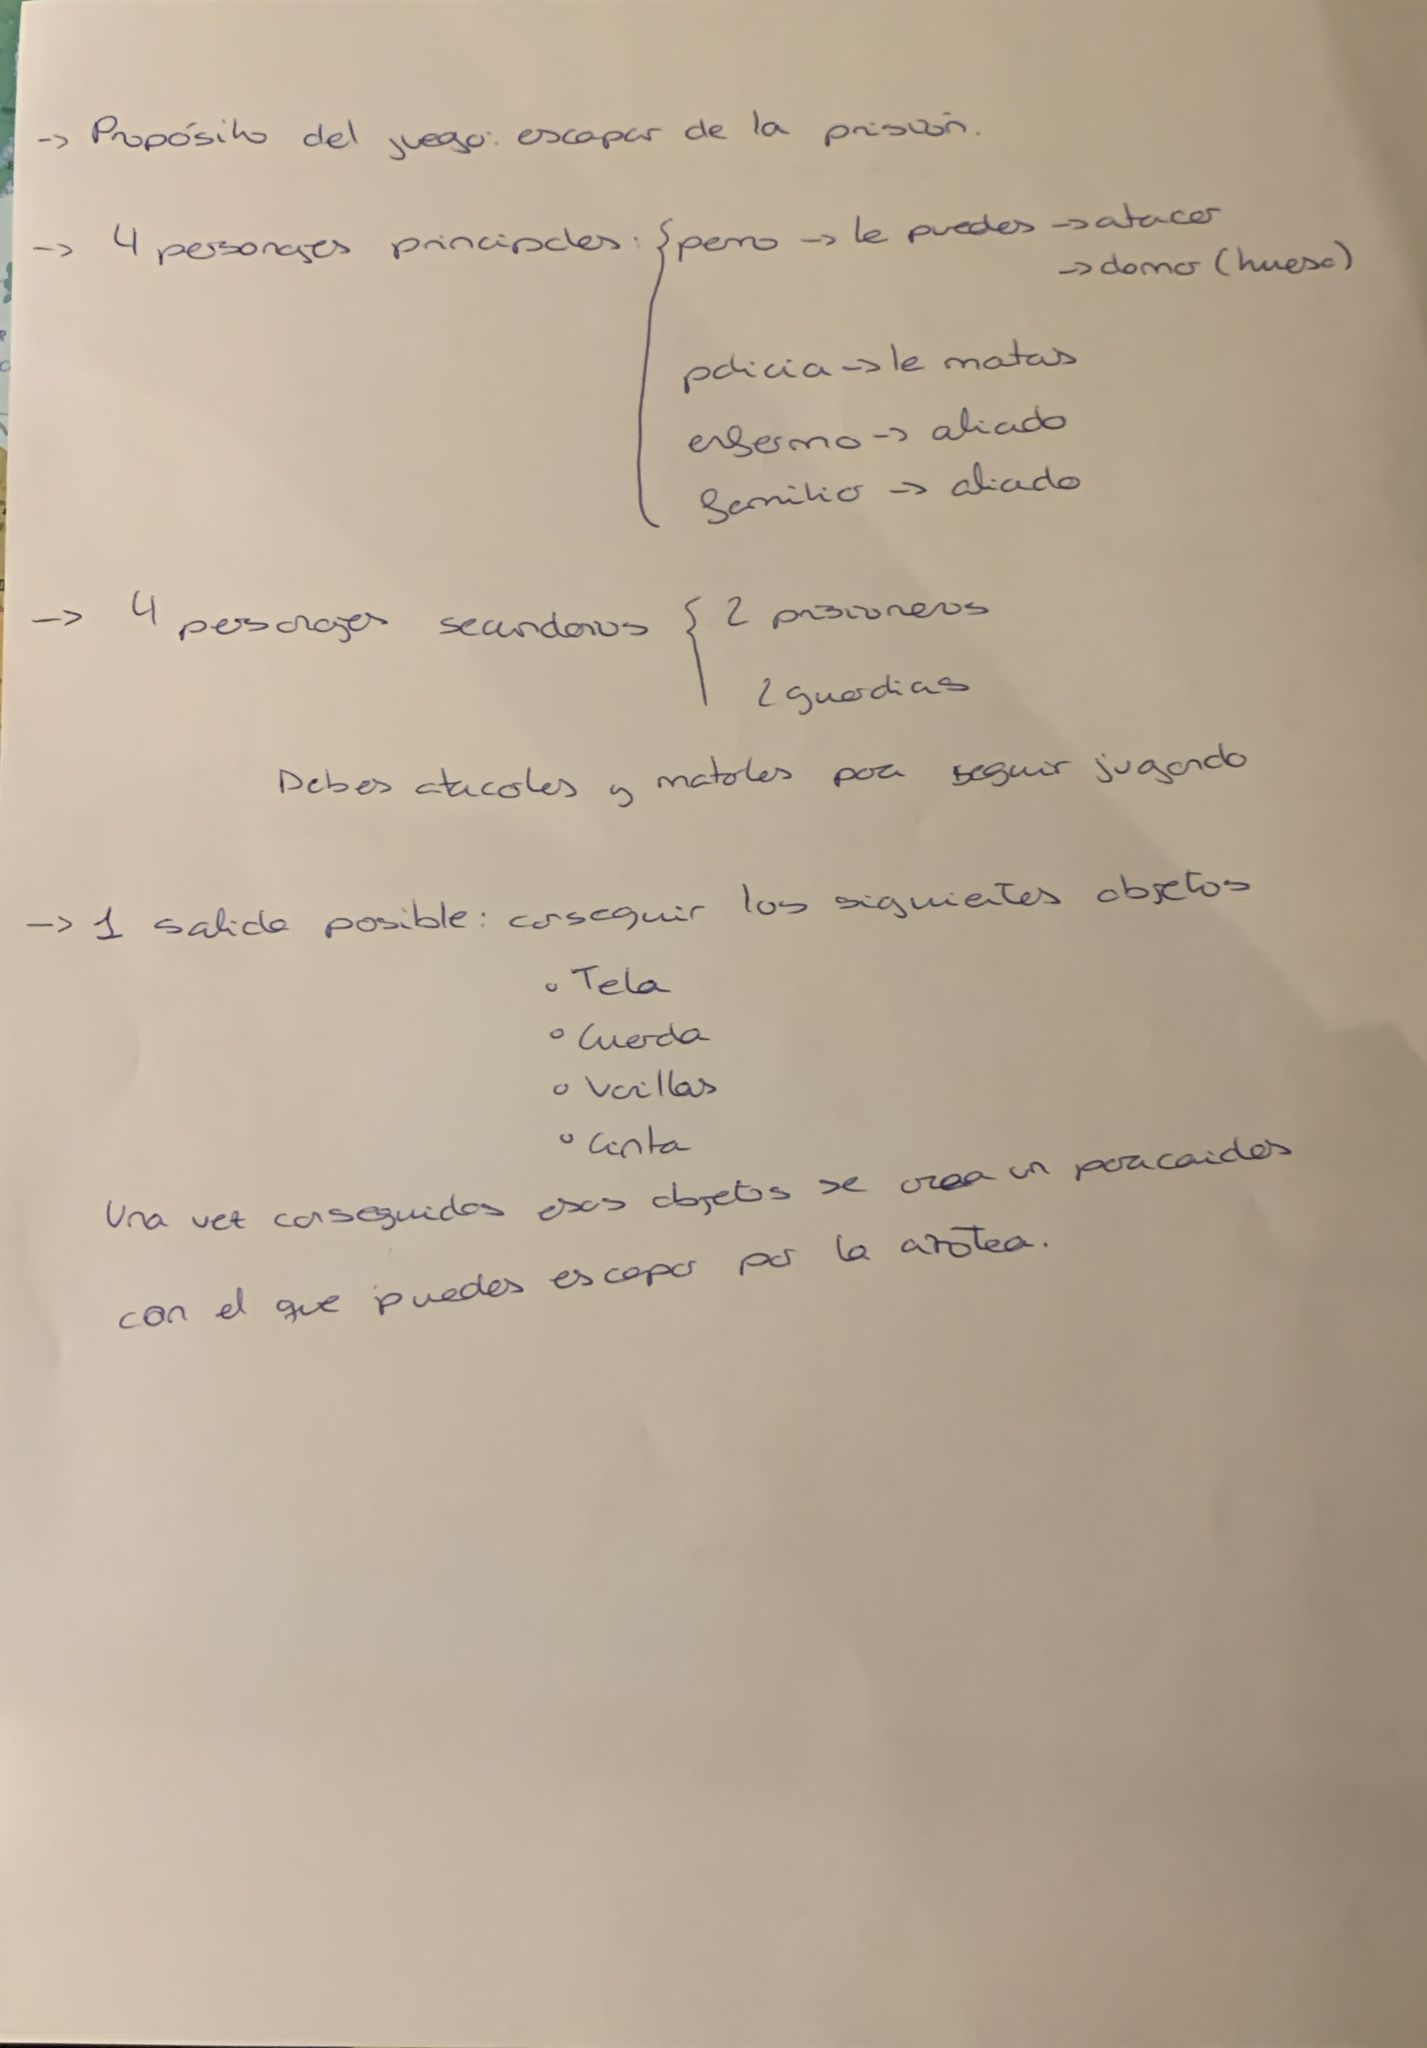 -> Propósito del juego: escapar de la prisión.
-> 4 personajes principales: { perro -> le puedes -> atacar
-> domar (hueso)
policia -> le matas
enfermo -> aliado
familiar -> aliado
-> 4 personajes secundarios { 2 prisioneros
2 guardias
Debes atacarles y matarles para seguir jugando
-> 1 salida posible: conseguir los siguientes objetos
◦ Tela
◦ Cuerda
◦ Varillas
◦ Cinta
Una vez conseguidos esos objetos se crea un paracaidas
con el que puedes escapar por la azotea.